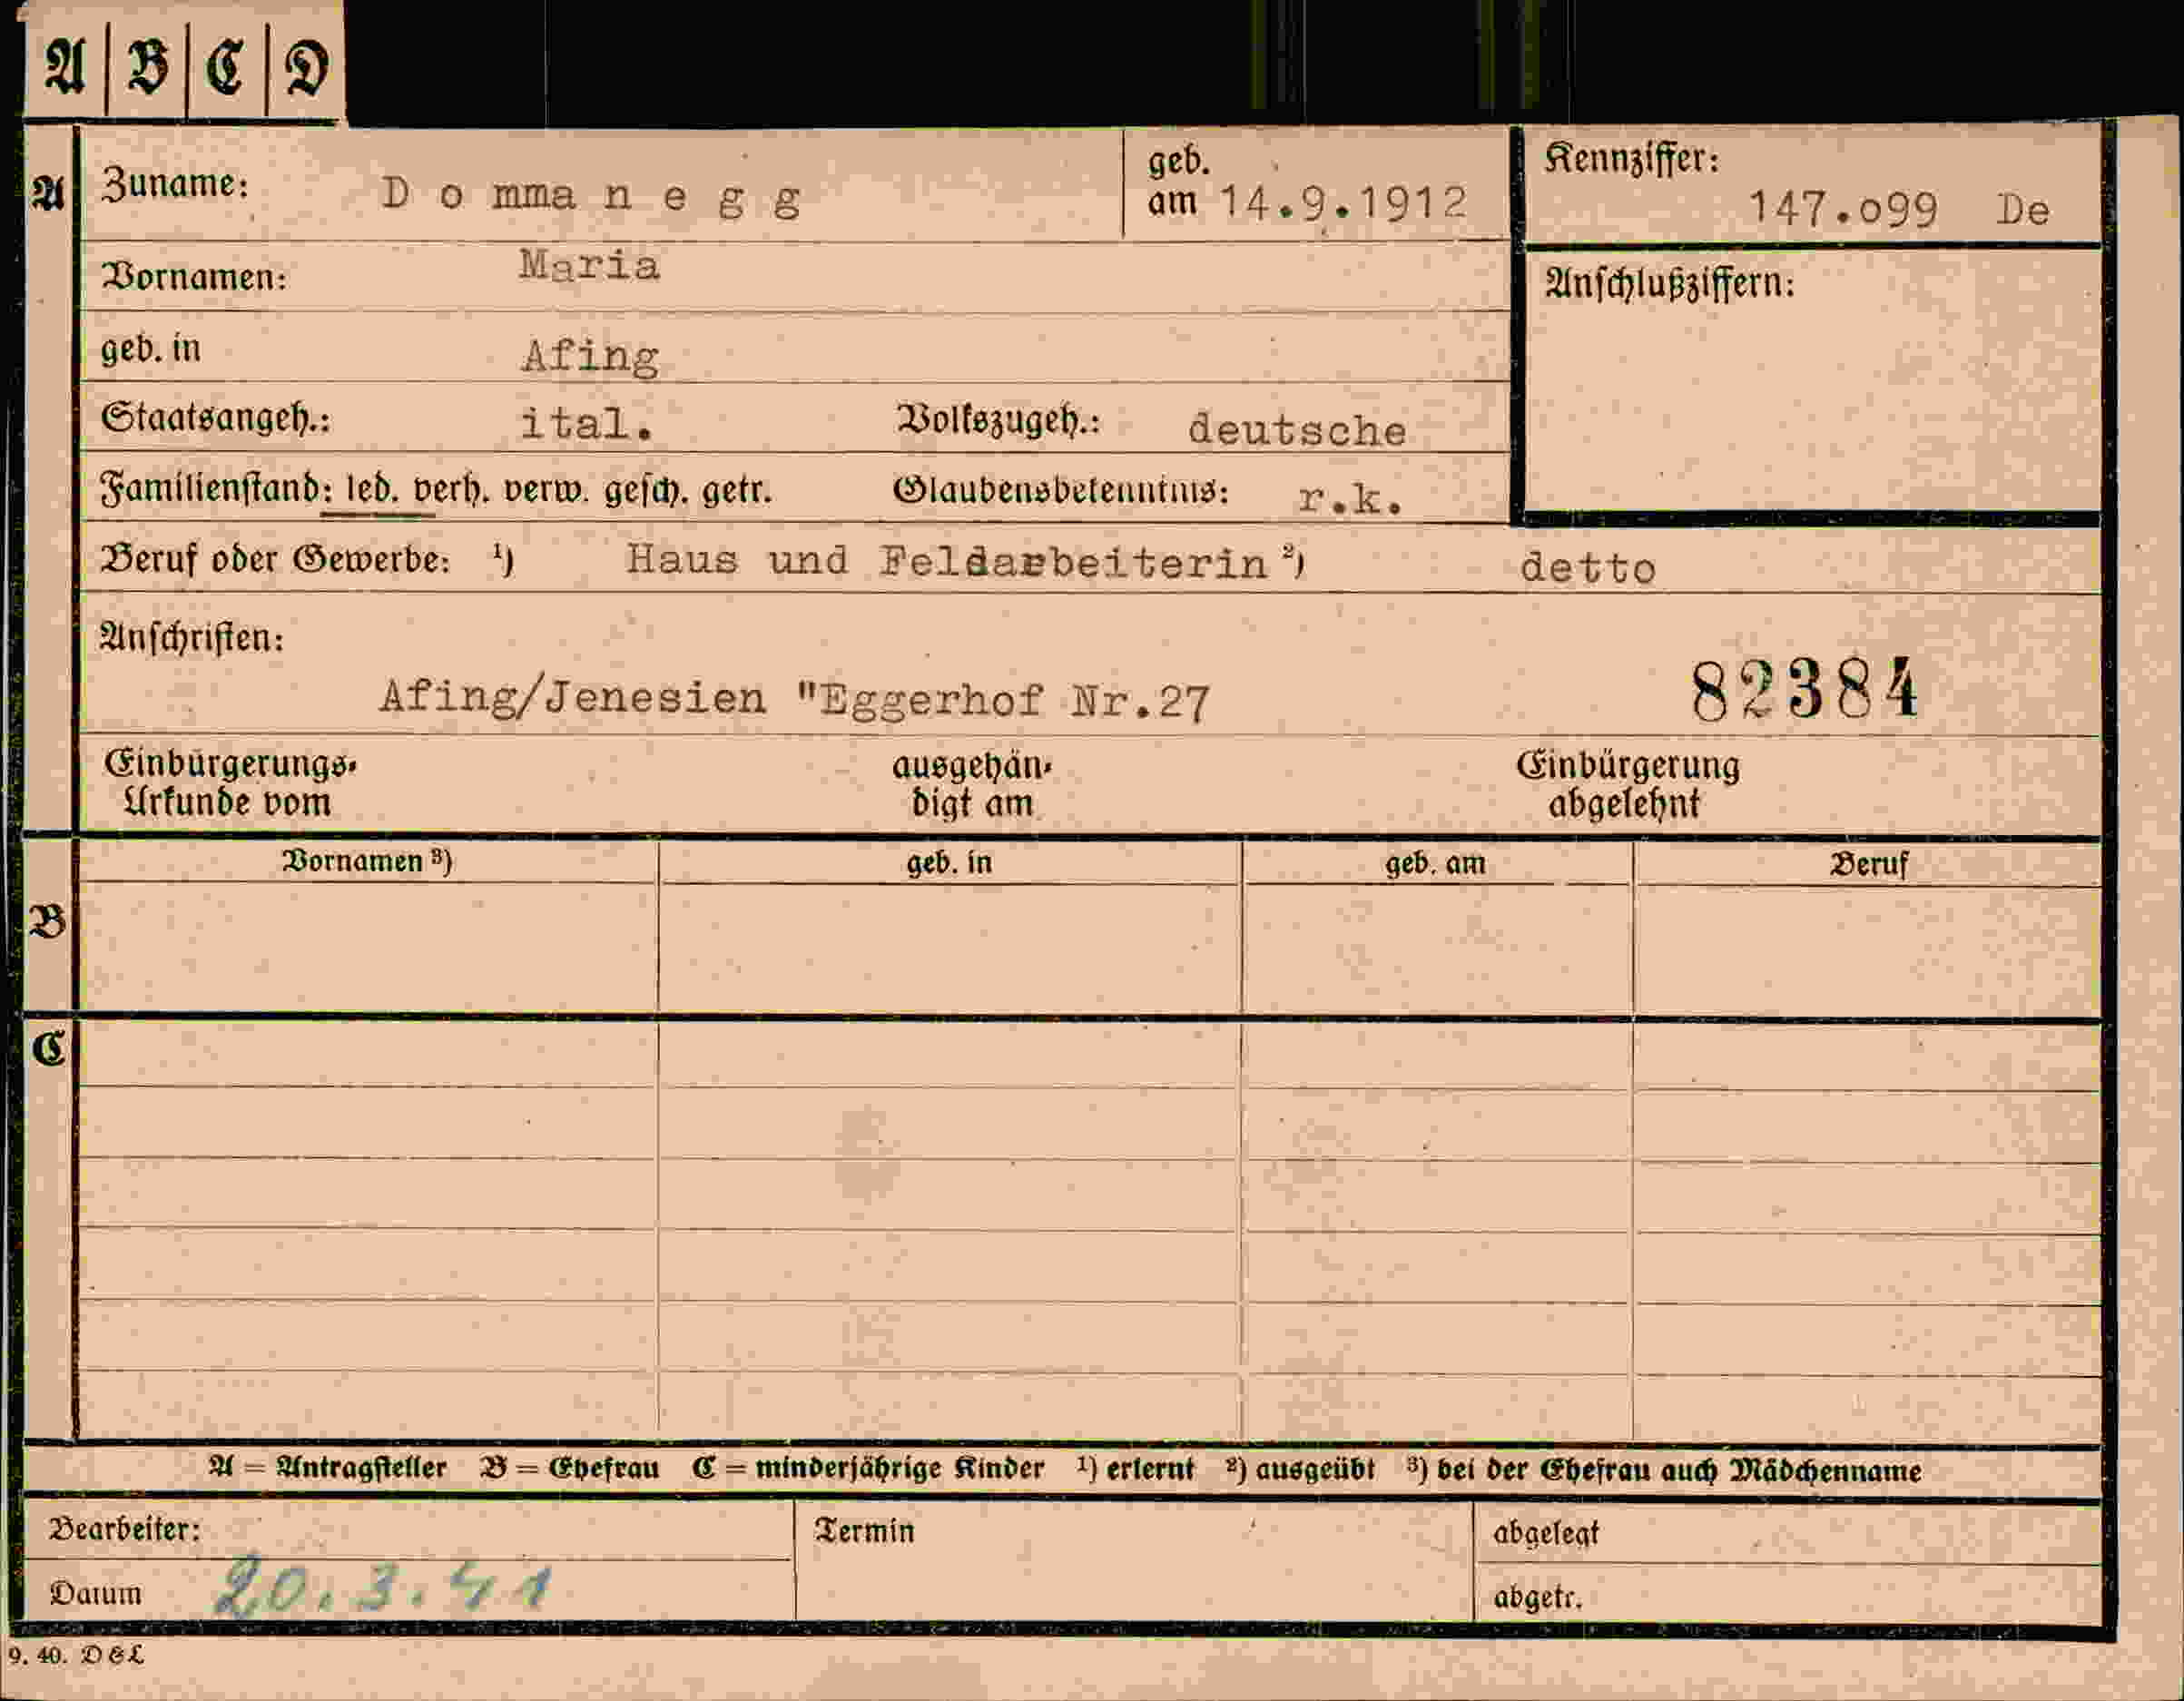 A B C D
A Zuname: Dommanegg geb. am 14.9.1912 Kennziffer: 147.o99 De
Vornamen: Maria Anschlußziffern:
geb. in Afing
Staatsangeh.: ital. Volkszugeh.: deutsche
Familienstand: led. verh. verw. gesch. getr. Glaubensbekenntnis: r.k.
Beruf oder Gewerbe: ¹) Haus und Feldarbeiterin ²) detto
Anschriften:
Afing/Jenesien "Eggerhof Nr.27 82384
Einbürgerungs- ausgehän- Einbürgerung
Urkunde vom digt am abgelehnt
Vornamen ³) geb. in geb. am Beruf
B
C
A = Antragsteller B = Ehefrau C = minderjährige Kinder ¹) erlernt ²) ausgeübt ³) bei der Ehefrau auch Mädchenname
Bearbeiter: Termin abgelegt
Datum 20.3.41 abgetr.
9. 40. D&L